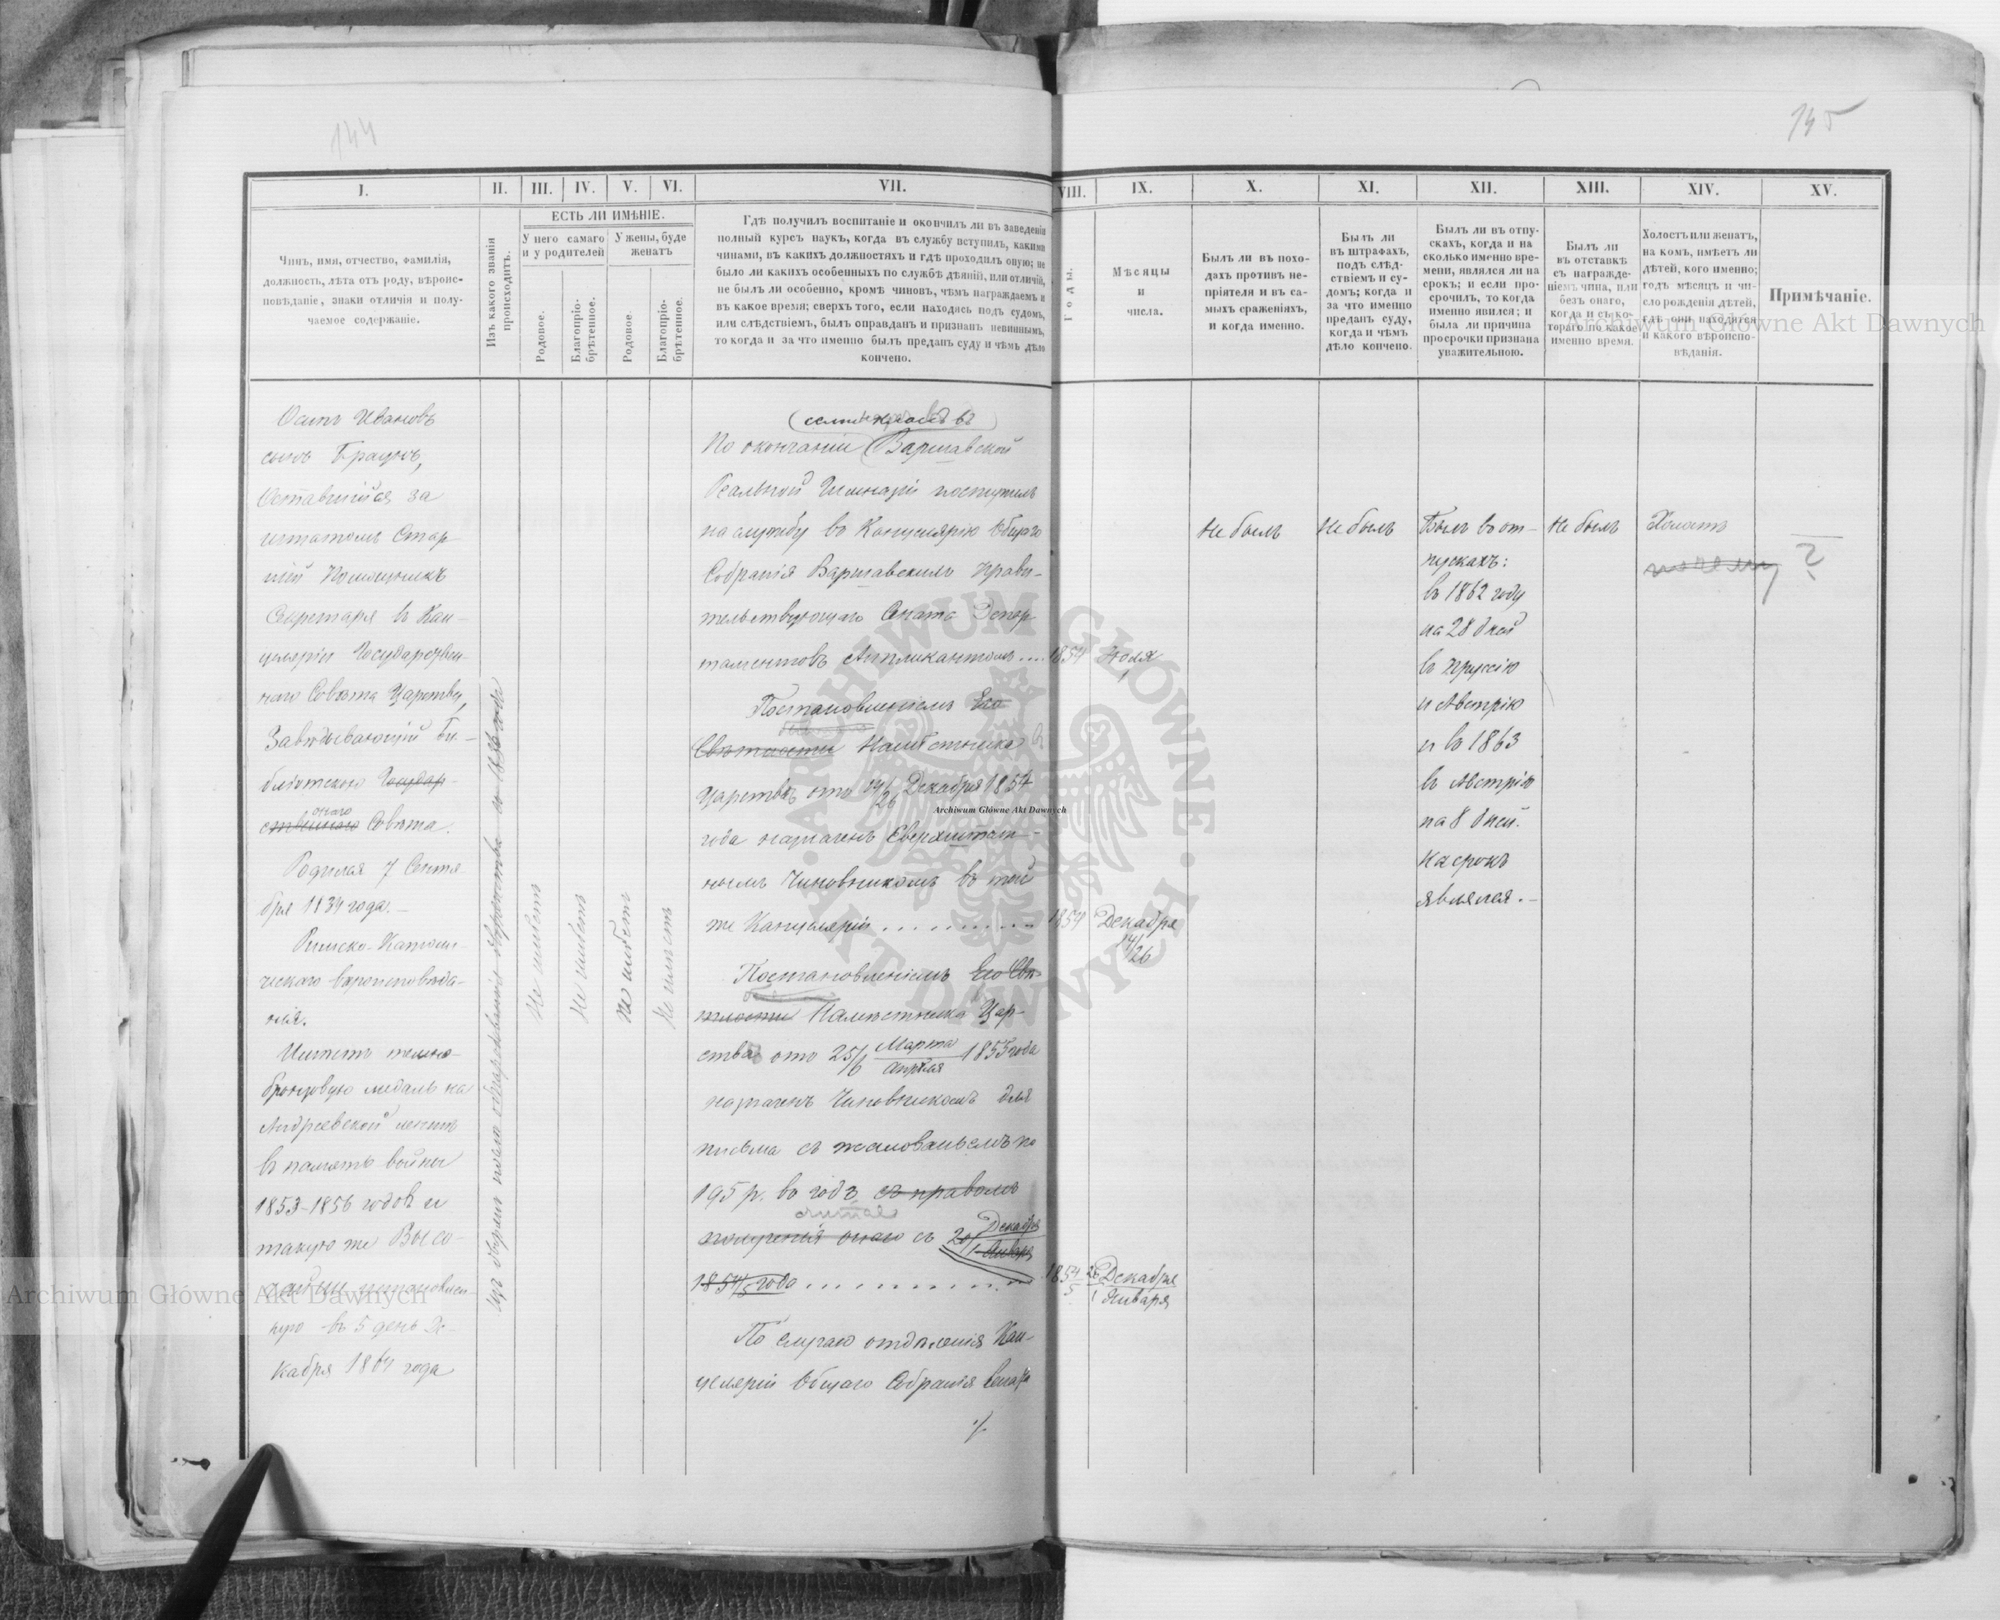 144
145
I.
II.
III.
IV.
V.
VI.
VII.
VIII.
IX.
X.
XI.
XII.
XIII.
XIV.
XV.
Чинъ, имя, отчество, фамилія,
должность, лѣта отъ роду, вѣроис-
повѣданіе, знаки отличія и полу-
чаемое содержаніе.
Изъ какого званія
происходитъ.
ЕСТЬ ЛИ ИМѢНІЕ.
У него самаго
и у родителей
У жены, буде
женатъ
Родовое.
Благопріо-
брѣтенное.
Родовое.
Благопріо-
брѣтенное.
Гдѣ получилъ воспитаніе и окончилъ ли въ заведеніи
полный курсъ наукъ, когда въ службу вступилъ, какими
чинами, въ какихъ должностяхъ и гдѣ проходилъ оную; не
было ли какихъ особенныхъ по службѣ дѣяній, или отличій,
не былъ ли особенно, кромѣ чиновъ, чѣмъ награждаемъ и
въ какое время; сверхъ того, если находясь подъ судомъ,
или слѣдствіемъ, былъ оправданъ и признанъ невиннымъ,
то когда и за что именно былъ преданъ суду и чѣмъ дѣло
кончено.
Годы.
Мѣсяцы
и
числа.
Былъ ли въ похо-
дахъ противъ не-
пріятеля и въ са-
мыхъ сраженіяхъ,
и когда именно.
Былъ ли
въ штрафахъ,
подъ слѣд-
ствіемъ и су-
домъ; когда и
за что именно
преданъ суду,
когда и чѣмъ
дѣло кончено.
Былъ ли въ отпу-
скахъ, когда и на
сколько именно вре-
мени, являлся ли на
срокъ; и если про-
срочилъ, то когда
именно явился; и
была ли причина
просрочки признана
уважительною.
Былъ ли
въ отставкѣ
съ награжде-
ніемъ чина, или
безъ онаго,
когда и съ ко-
тораго по какое
именно время.
Холостъ или женатъ,
на комъ, имѣетъ ли
дѣтей, кого именно;
годъ мѣсяцъ и чи-
сло рожденія дѣтей,
гдѣ они находятся
и какого вѣроиспо-
вѣданія.
Примѣчаніе.
Осипъ Ивановъ
сынъ Браунъ,
Оставшійся за
штатомъ Стар-
шій Помощникъ
Секретаря въ Кан-
целяріи Государствен-
наго Совѣта Царства,
Завѣдывающій Би-
бліотекою Государ-
онаго
ственнаго Совѣта.
Родился 7 Сентя-
бря 1834 года.-
Римско-Католи-
ческаго вѣроисповѣда-
нія.
Имѣетъ темно-
бронзовую медаль на
Андреевской лентѣ
въ память войны
1853-1856 годовъ и
такую же Высо-
чайше установлен-
ную въ 5 день Де-
кабря 1864 года
Не имѣетъ
Не имѣетъ
Не имѣетъ
Не имѣетъ
По окончаніи Варшавской
Реальной Гимназіи поступилъ
на службу въ Канцелярію Общаго
Собранія Варшавскихъ Прави-
тельствующаго Сената Депар-
таментовъ Аппликантомъ ... 1854 Іюля 1
Постановленіемъ Его
Свѣтлости Намѣстника
Царства отъ 14/26 Декабря 1854
года назначенъ Сверхштат-
нымъ Чиновникомъ въ той
же Канцеляріи .......... 1854 Декабря 14/26
Постановленіемъ Его Свѣ-
тлости Намѣстника Цар-
ства отъ 25/6 Марта/Апрѣля 1855 года
назначенъ Чиновникомъ для
письма съ жалованьемъ по
195 р. въ годъ съ правомъ
считая
полученія онаго съ 20/1 Декабря/Января
1854/5 года .............. 1854/5 20/1 Декабря/Января
По случаю отдѣленія Кан-
целяріи Общаго Собранія Сената
./.
Не былъ
Не былъ
Былъ въ от-
пускахъ:
въ 1862 году
на 28 дней
въ Пруссію
и Австрію
и въ 1863
въ Австрію
на 8 дней.
На срокъ
явился.-
Не былъ
Холостъ
?
Archiwum Główne Akt Dawnych
Archiwum Główne Akt Dawnych
Archiwum Główne Akt Dawnych
ARCHIWUM GŁÓWNE AKT DAWNYCH